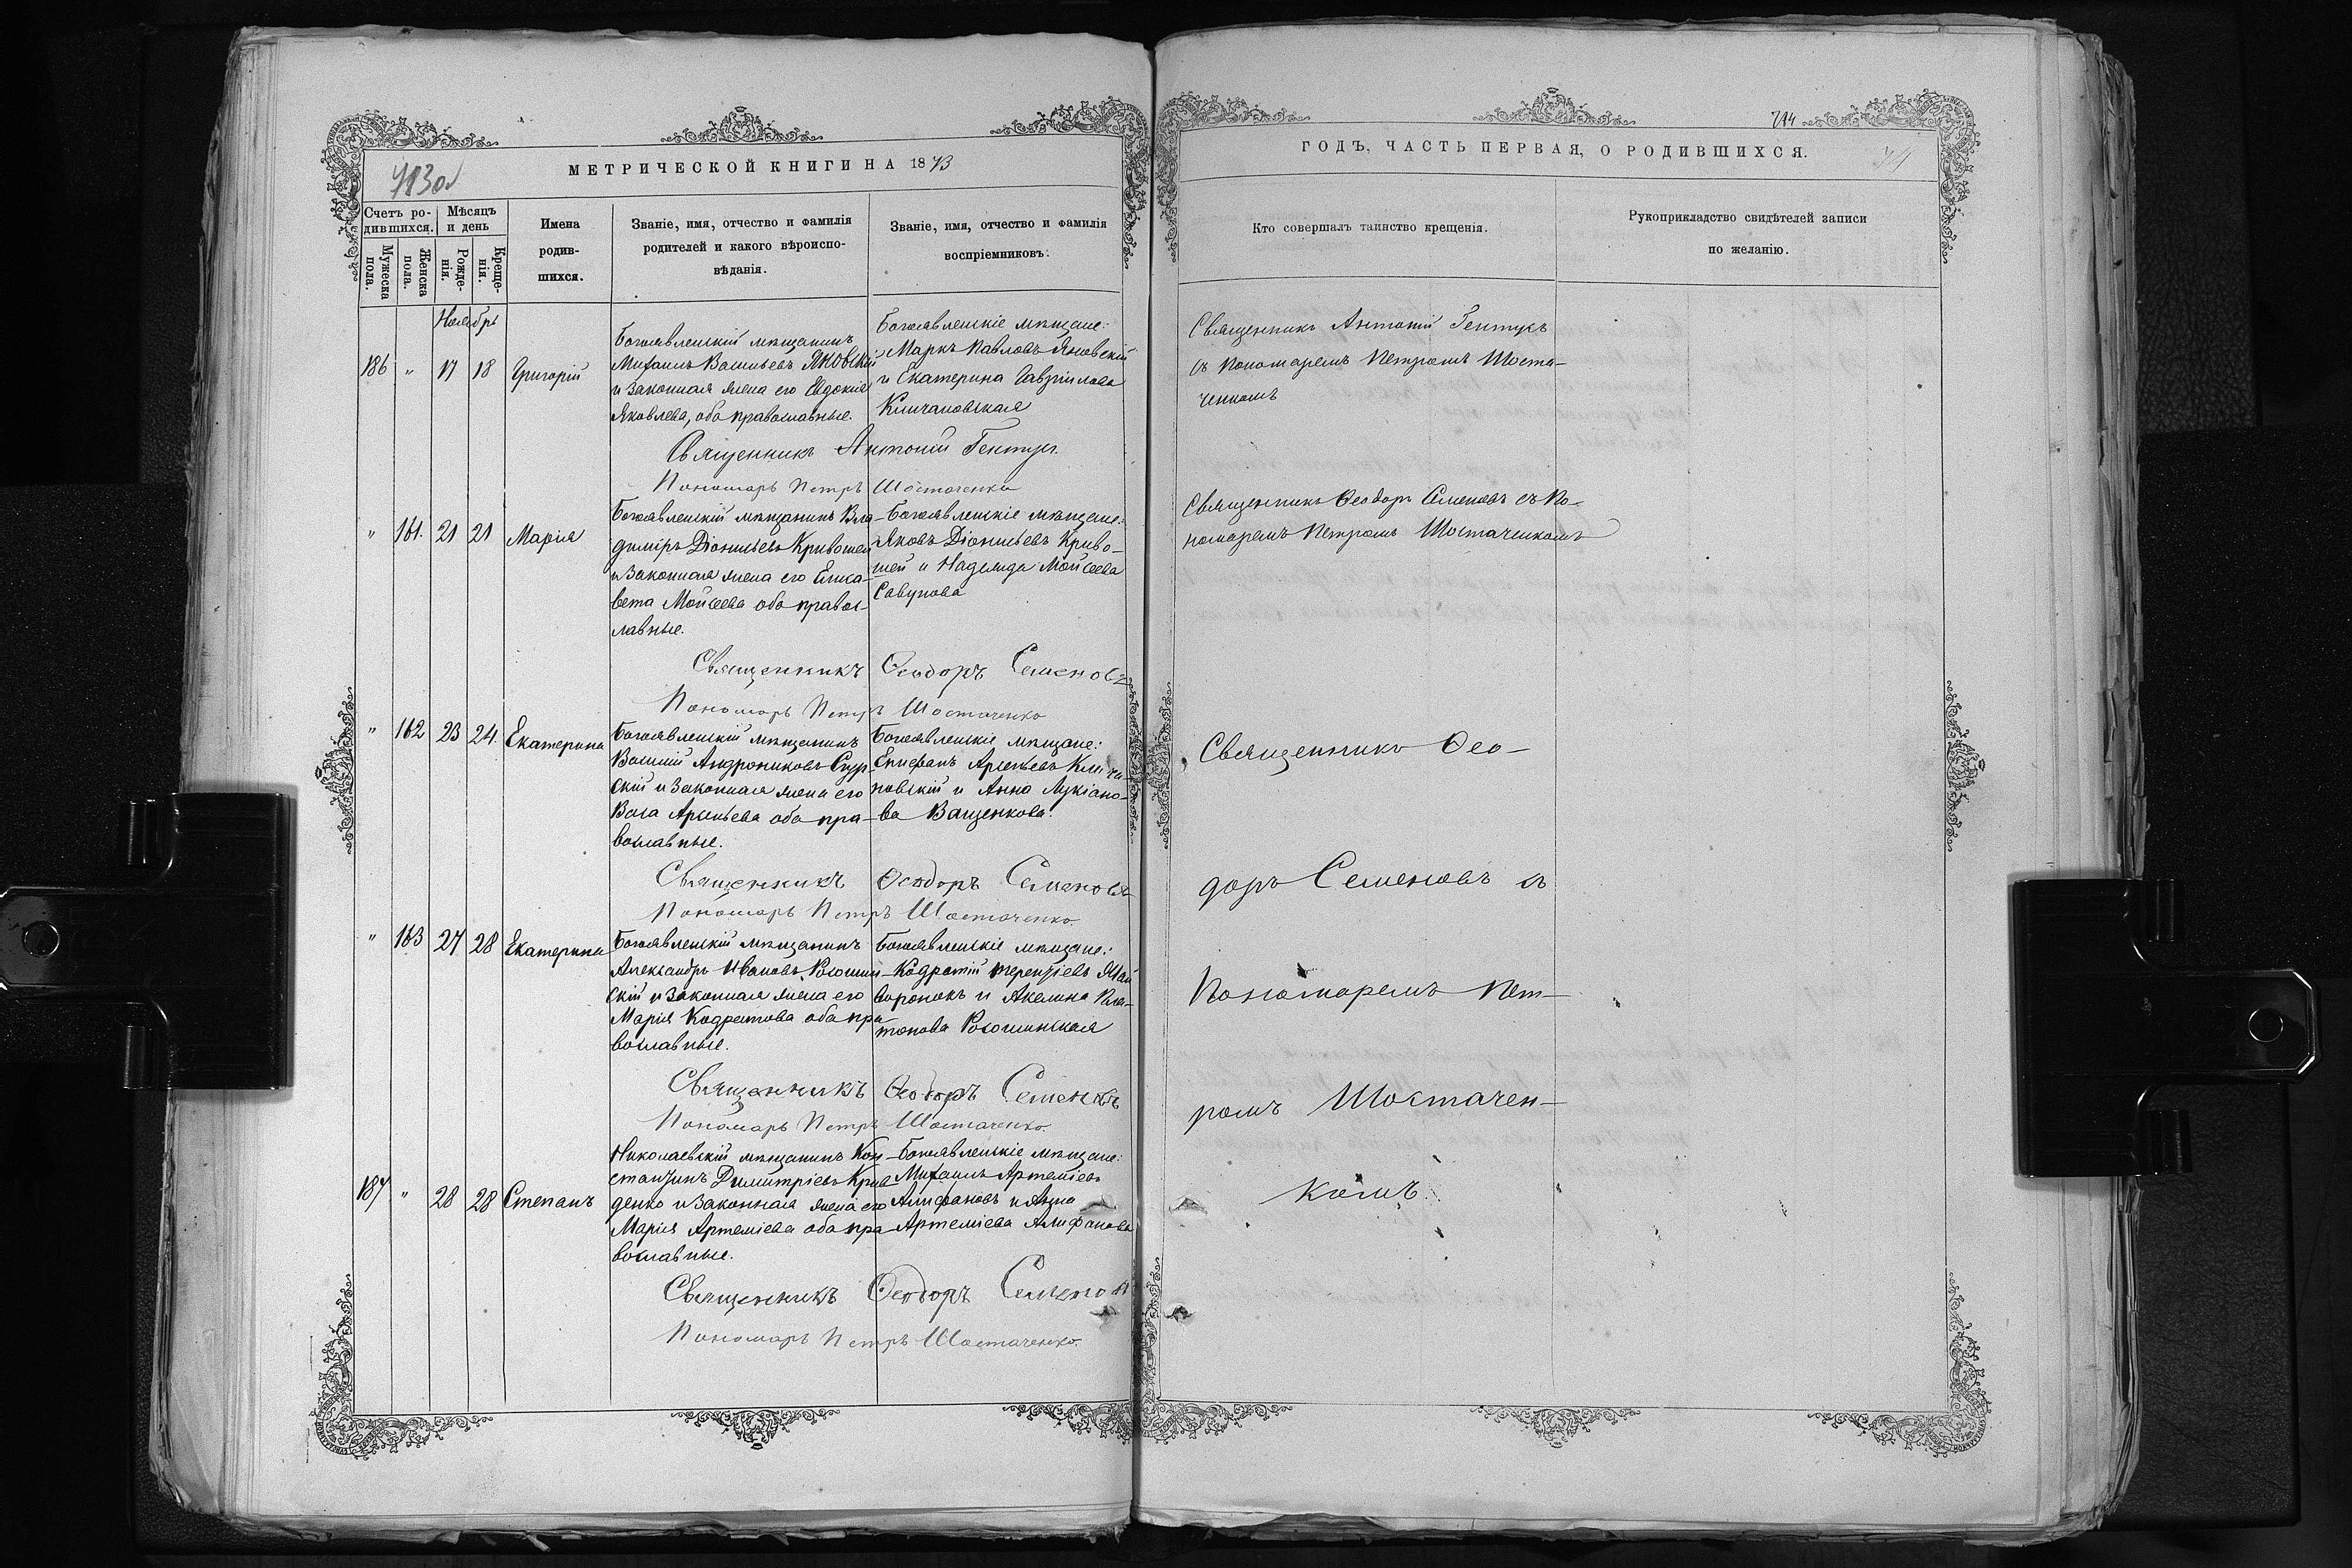 713об
МЕТРИЧЕСКОЙ КНИГИ НА 1873
Счетъ ро-
дившихся.
Мѣсяцъ
и день
Мужеска
пола.
Женска
пола.
Рожде-
нія.
Креще-
нія.
Имена
родив-
шихся.
Званіе, имя, отчество и фамилія
родителей и какого вѣроиспо-
вѣданія.
Званіе, имя, отчество и фамилія
воспріемниковъ.
Ноябрь
186 " 17 18 Григорій
Богоявленскій мѣщанинъ
Михаилъ Васильевъ Яновскій
и законная жена его Евдокія
Яковлева, оба православные.
Богоявленскіе мѣщане:
Маркъ Павловъ Яновскій
и Екатерина Гавріилова
Климановская
Священникъ Антоній Гентук
Пономарь Петръ Шостаченко
" 161. 21 21 Марія
Богоявленскій мѣщанинъ Вла-
диміръ Діонисьевъ Кривошей
и законная жена его Елиса-
вета Мойсеева оба правос-
лавные.
Богоявленскіе мѣщане:
Яковъ Діонисьевъ Криво-
шей и Надежда Мойсеева
Савунова
Священникъ Ѳеодоръ Семеновъ
Пономарь Петръ Шостаченко
" 162 23 24 Екатерина
Богоявленскій мѣщанинъ
Василій Андрониковъ
скій и законная жена его
Васа Арсеньева оба пра-
вославные.
Богоявленскіе мѣщане:
Епифанъ Арсеньевъ Клима-
новскій и Анна Лукіано-
ва Ващенкова.
Священникъ Ѳеодоръ Семеновъ
Пономарь Петръ Шостаченко
" 163 27 28 Екатерина
Богоявленскій мѣщанинъ
Александръ Ивановъ
скій и законная жена его
Марія Кодратова оба пра-
вославные.
Богоявленскіе мѣщане:
Кодратій Терентіевъ
и Акелина Пла-
тонова
Священникъ Ѳеодоръ Семеновъ
Пономарь Петръ Шостаченко.
187 " 28 28 Степанъ
Николаевскій мѣщанинъ Кон-
стантинъ Димитріевъ
денко и законная жена его
Марія Артеміева оба пра-
вославные.
Богоявленскіе мѣщане:
Михаилъ Артеміевъ
Алифановъ и Анна
Артеміева Алифанова
Священникъ Ѳеодоръ Семеновъ
Пономарь Петръ Шостаченко.
714
ГОДЪ, ЧАСТЬ ПЕРВАЯ, О РОДИВШИХСЯ.
Кто совершалъ таинство крещенія.
Рукоприкладство свидѣтелей записи
по желанію.
Священникъ Антоній Гентукъ
съ Пономаремъ Петромъ Шоста-
ченкомъ
Священникъ Ѳеодоръ Семеновъ съ По-
номаремъ Петромъ Шостаченкомъ
Священникъ Ѳео-
доръ Семеновъ съ
Пономаремъ Пет-
ромъ Шостачен-
комъ.